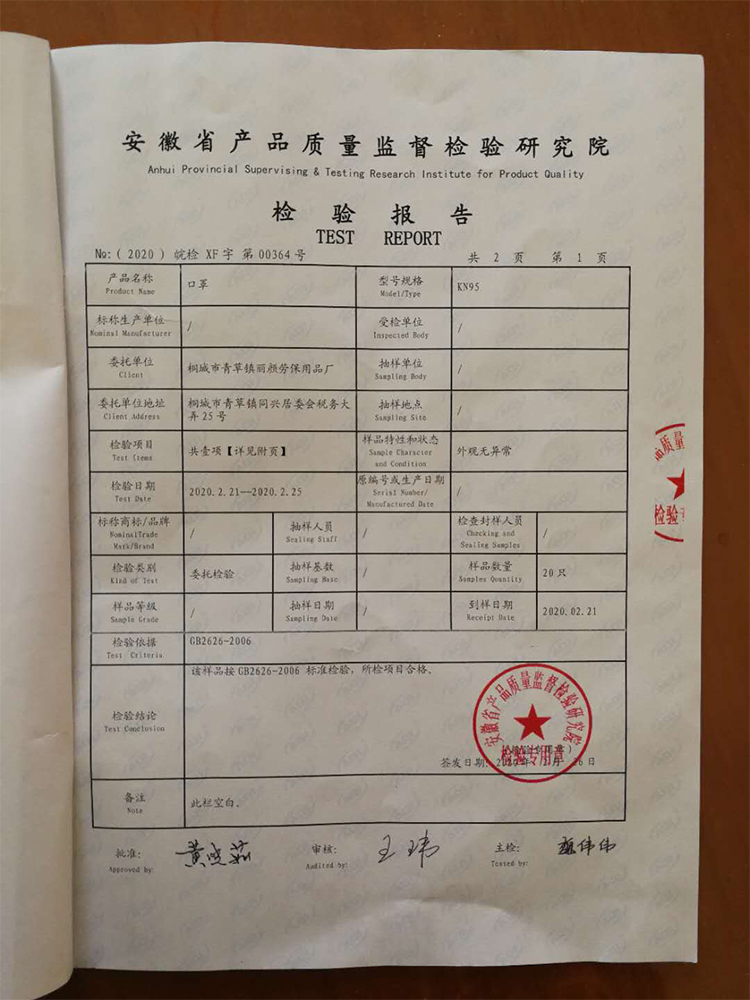 安徽省产品质量监督检验研究院
Anhui Provincial Supervising & Testing Research Institute for Product Quality
检验报告
TEST REPORT
№:(2020)皖检 XF字 第00364号
共 2 页 第 1 页
产品名称
Product Name
口罩
型号规格
Model/Type
KN95
标称生产单位
Nominal Manufacturer
/
受检单位
Inspected Body
/
委托单位
Client
桐城市青草镇丽颜劳保用品厂
抽样单位
Sampling Body
/
委托单位地址
Client Address
桐城市青草镇同兴居委会税务大
弄25号
抽样地点
Sampling Site
/
检验项目
Test Items
共壹项【详见附页】
样品特性和状态
Sample Character
and Condition
外观无异常
检验日期
Test Date
2020.2.21--2020.2.25
原编号或生产日期
Serial Number/
Manufactured Date
/
标称商标/品牌
NominalTrade
Mark/Brand
/
抽样人员
Sealing Staff
/
检查封样人员
Checking and
Sealing Samples
/
检验类别
Kind of Test
委托检验
抽样基数
Sampling Base
/
样品数量
Samples Quantity
20只
样品等级
Sample Grade
/
抽样日期
Sampling Date
/
到样日期
Receipt Date
2020.02.21
检验依据
Test Criteria
GB2626-2006
检验结论
Test Conclusion
该样品按GB2626-2006 标准检验，所检项目合格。
安徽省产品质量监督检验研究院
检验专用章
签发日期: 2020年 月 26日
备注
Note
此栏空白。
批准:
Approved by:
审核:
Audited by:
王玮
主检:
Tested by:
品质量
检验